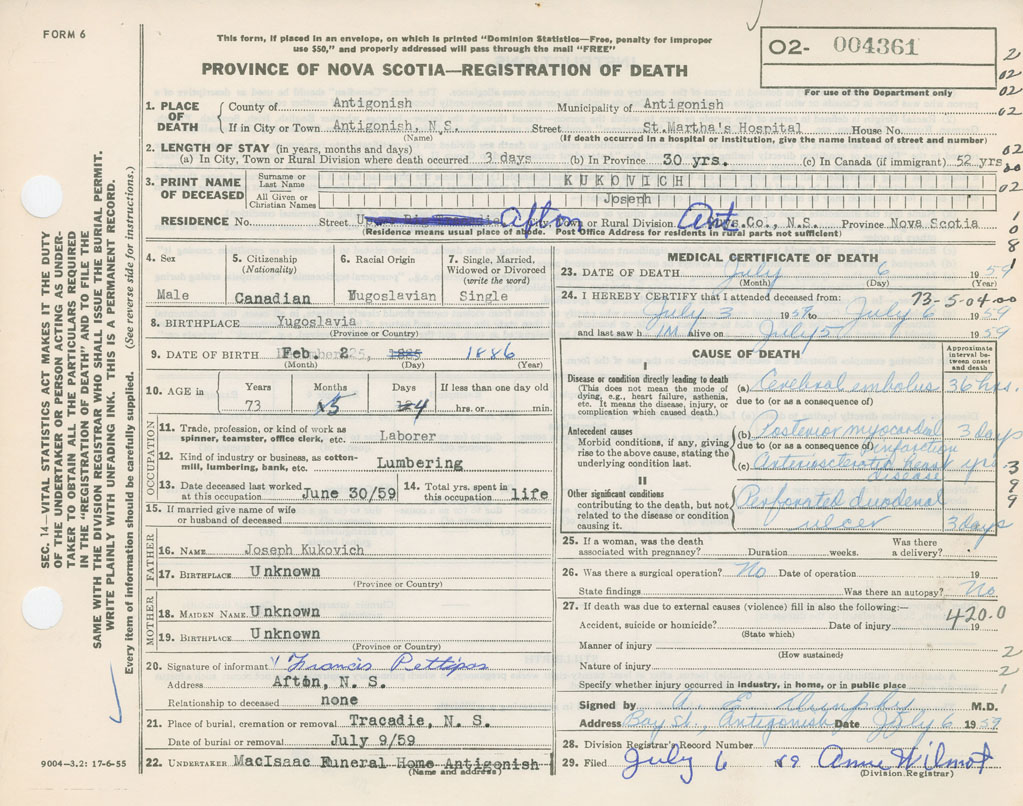 FORM 6
This form, if placed in an envelope, on which is printed "Dominion Statistics—Free, penalty for improper
use $50," and properly addressed will pass through the mail "FREE"
PROVINCE OF NOVA SCOTIA—REGISTRATION OF DEATH
02- 004361
For use of the Department only
1. PLACE OF DEATH
County of Antigonish Municipality of Antigonish
If in City or Town Antigonish, N.S. Street St.Martha's Hospital House No.
(Name) (If death occurred in a hospital or institution, give the name instead of street and number)
2. LENGTH OF STAY (in years, months and days)
(a) In City, Town or Rural Division where death occurred 3 days (b) In Province 30 yrs. (c) In Canada (if immigrant) 52 yrs
3. PRINT NAME OF DECEASED
Surname or Last Name KUKOVICH
All Given or Christian Names Joseph
RESIDENCE No. Street Afton City, Town or Rural Division Ant Co., N.S. Province Nova Scotia
(Residence means usual place of abode. Post Office Address for residents in rural parts not sufficient)
4. Sex
Male
5. Citizenship
(Nationality)
Canadian
6. Racial Origin
Yugoslavian
7. Single, Married,
Widowed or Divorced
(write the word)
Single
8. BIRTHPLACE Yugoslavia
(Province or Country)
9. DATE OF BIRTH Feb. 2, 1885 1886
(Month) (Day) (Year)
10. AGE in
Years Months Days If less than one day old
73 5 4 hrs. or min.
OCCUPATION
11. Trade, profession, or kind of work as
spinner, teamster, office clerk, etc. Laborer
12. Kind of industry or business, as cotton-
mill, lumbering, bank, etc. Lumbering
13. Date deceased last worked
at this occupation June 30/59
14. Total yrs. spent in
this occupation life
15. If married give name of wife
or husband of deceased
FATHER
16. NAME Joseph Kukovich
17. BIRTHPLACE Unknown
(Province or Country)
MOTHER
18. MAIDEN NAME Unknown
19. BIRTHPLACE Unknown
(Province or Country)
20. Signature of informant Francis Pettipas
Address Afton, N. S.
Relationship to deceased none
21. Place of burial, cremation or removal Tracadie, N. S.
Date of burial or removal July 9/59
22. UNDERTAKER MacIsaac Funeral Home Antigonish
(Name and address)
MEDICAL CERTIFICATE OF DEATH
23. DATE OF DEATH July 6 1959
(Month) (Day) (Year)
24. I HEREBY CERTIFY that I attended deceased from: 73-5-04-00
July 3 1959 to July 6 1959
and last saw h im alive on July 5 1959
CAUSE OF DEATH
Approximate
interval be-
tween onset
and death
I
Disease or condition directly leading to death
(This does not mean the mode of
dying, e.g., heart failure, asthenia,
etc. It means the disease, injury, or
complication which caused death.)
(a) Cerebral embolus 36 hrs.
due to (or as a consequence of)
Antecedent causes
Morbid conditions, if any, giving
rise to the above cause, stating the
underlying condition last.
(b) Posterior myocardial infarction 3 days
due to (or as a consequence of)
(c) Arteriosclerotic heart disease yrs.
II
Other significant conditions
contributing to the death, but not
related to the disease or condition
causing it.
Perforated duodenal
ulcer 3 days
25. If a woman, was the death
associated with pregnancy? Duration weeks. Was there
a delivery?
26. Was there a surgical operation? No Date of operation 19
State findings Was there an autopsy? No
27. If death was due to external causes (violence) fill in also the following:—
420.0
Accident, suicide or homicide? Date of injury 19
(State which)
Manner of injury
(How sustained)
Nature of injury
Specify whether injury occurred in industry, in home, or in public place
Signed by M.D.
Address Bay St., Antigonish Date July 6 1959
28. Division Registrar's Record Number
29. Filed July 6 59 Anne Wilmot
(Division Registrar)
SEC. 14—VITAL STATISTICS ACT MAKES IT THE DUTY
OF THE UNDERTAKER OR PERSON ACTING AS UNDER-
TAKER TO OBTAIN ALL THE PARTICULARS REQUIRED
IN THE "REGISTRATION OF DEATH" AND TO FILE THE
SAME WITH THE DIVISION REGISTRAR WHO SHALL ISSUE THE BURIAL PERMIT.
WRITE PLAINLY WITH UNFADING INK. THIS IS A PERMANENT RECORD.
Every item of information should be carefully supplied. (See reverse side for instructions.)
9004—3.2: 17-6-55
2
02
02
02
02
20
02
1
0
8
1
3
9
9
2
2
1